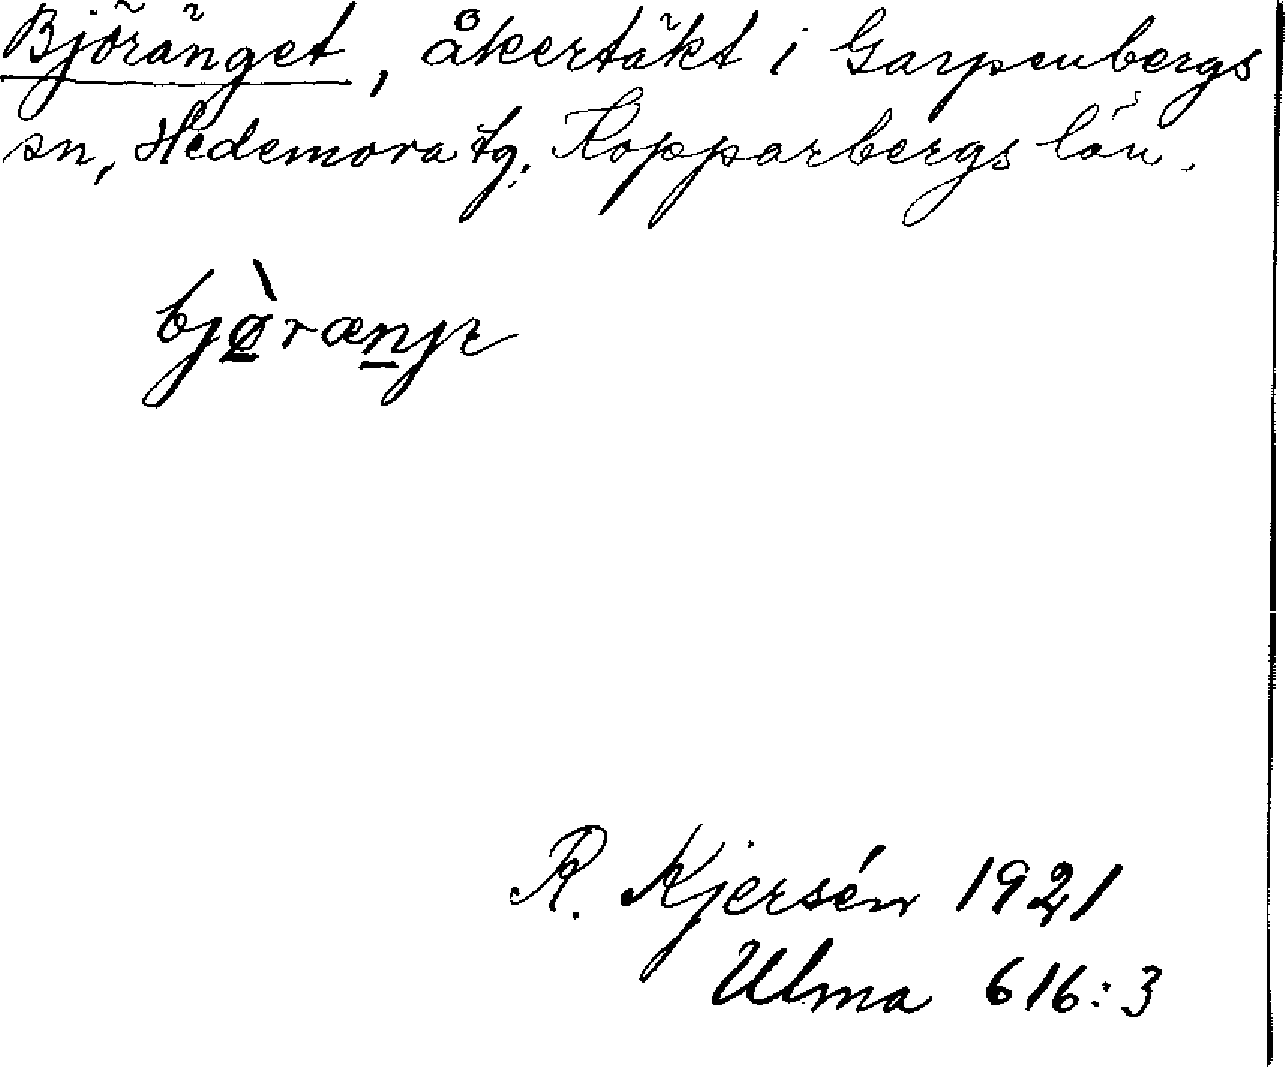 Björänget, åkertäkt i Garpenbergs
sn, Hedemora tg. Kopparbergs län.
bjø̀rænjɛ
R. Kjersén 1921
Ulma 616:3